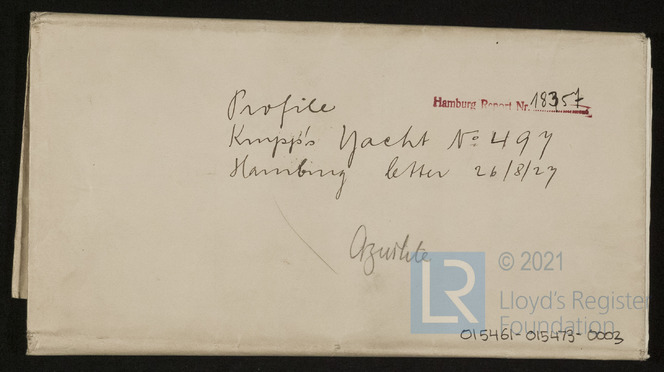 Hamburg Report Nr. 18357
Profile
Krupp's Yacht No 497
Hamburg letter 26/8/27
Azurlite
LR
© 2021
Lloyd's Register
Foundation
015461-015473-0003